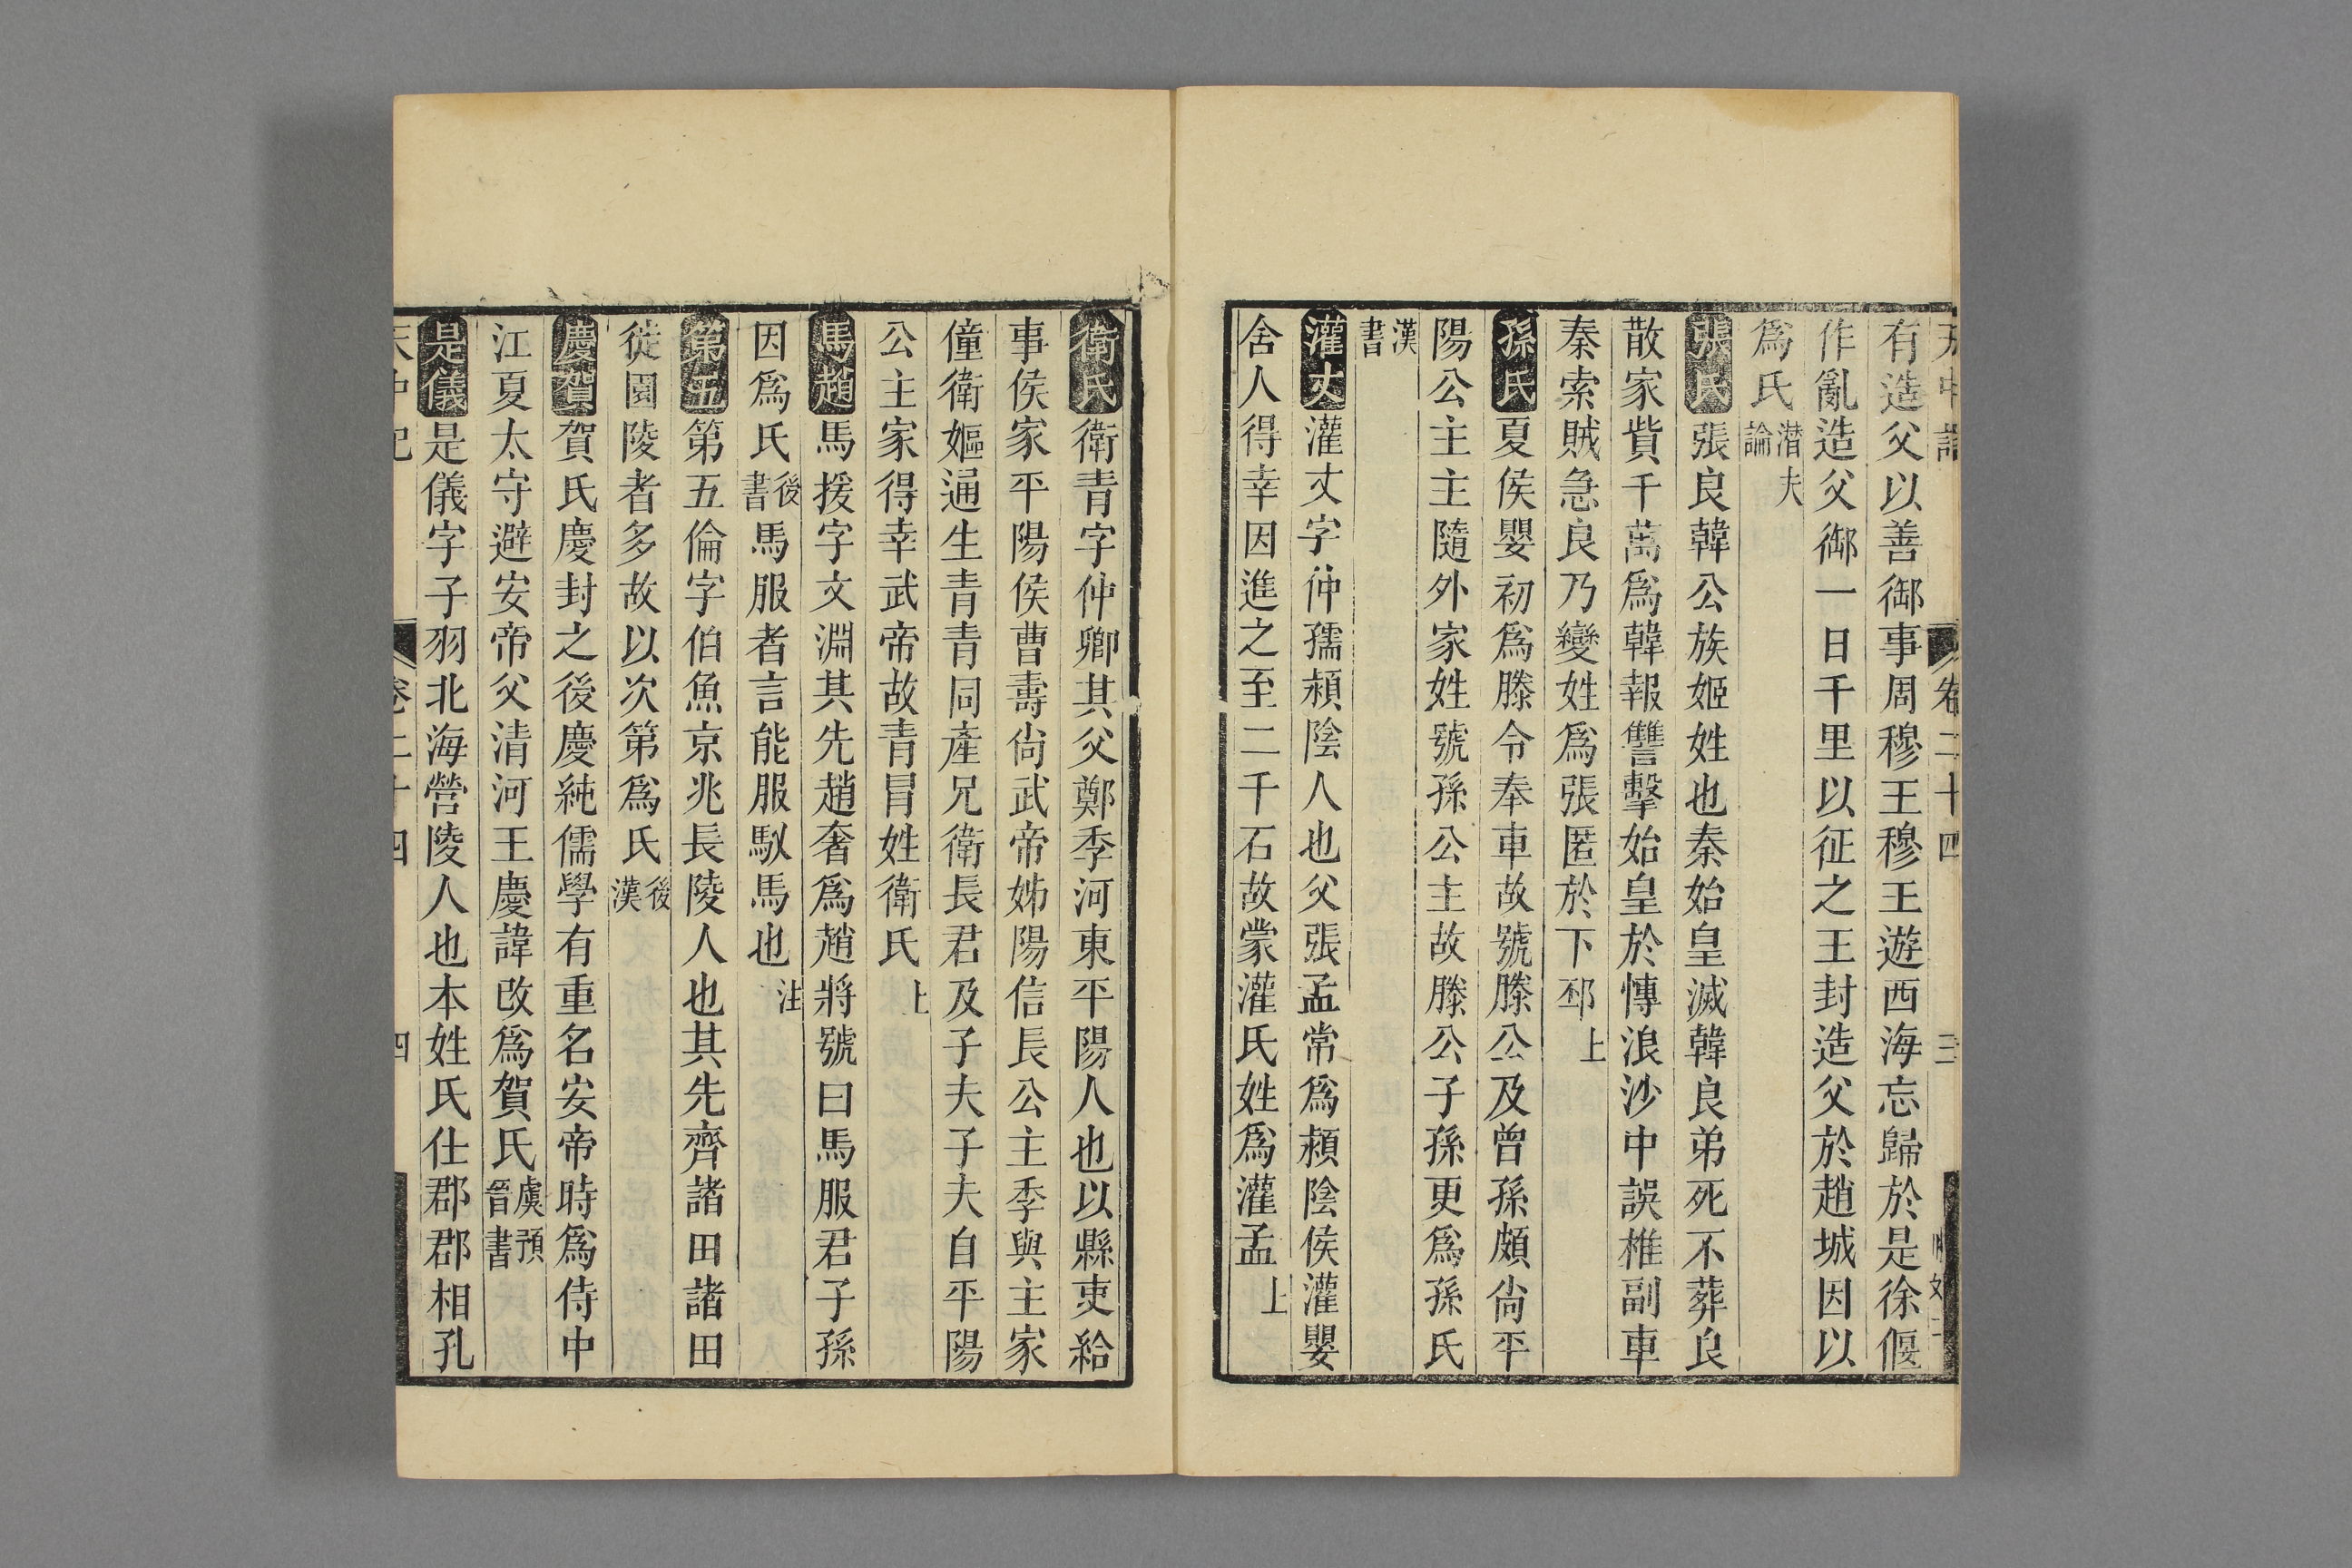 卷二十四
三
有造父以善御事周穆王穆王遊西海忘歸於是徐偃
作亂造父御一日千里以征之王封造父於趙城因以
爲氏潜夫論
張氏張良韓公族姬姓也秦始皇滅韓良弟死不葬良
散家貲千萬爲韓報讐擊始皇於慱浪沙中誤椎副車
秦索賊急良乃變姓爲張匿於下邳上
孫氏夏侯嬰初爲滕令奉車故號滕公及曾孫頗尙平
陽公主主隨外家姓號孫公主故滕公子孫更爲孫氏
漢書
灌丈灌丈字仲孺頴陰人也父張孟常爲頴陰侯灌嬰
舍人得幸因進之至二千石故蒙灌氏姓爲灌孟上
衛氏衛青字仲卿其父鄭季河東平陽人也以縣吏給
事侯家平陽侯曹壽尙武帝姊陽信長公主季與主家
僮衛嫗通生青青同產兄衛長君及子夫子夫自平陽
公主家得幸武帝故青冒姓衛氏上
馬趙馬援字文淵其先趙奢爲趙將號曰馬服君子孫
因爲氏後書馬服者言能服馭馬也注
第五第五倫字伯魚京兆長陵人也其先齊諸田諸田
徙園陵者多故以次第爲氏後漢
慶賀賀氏慶封之後慶純儒學有重名安帝時爲侍中
江夏太守避安帝父清河王慶諱改爲賀氏虞預晉書
是儀是儀字子羽北海營陵人也本姓氏仕郡郡相孔
天中記
卷二十四
四